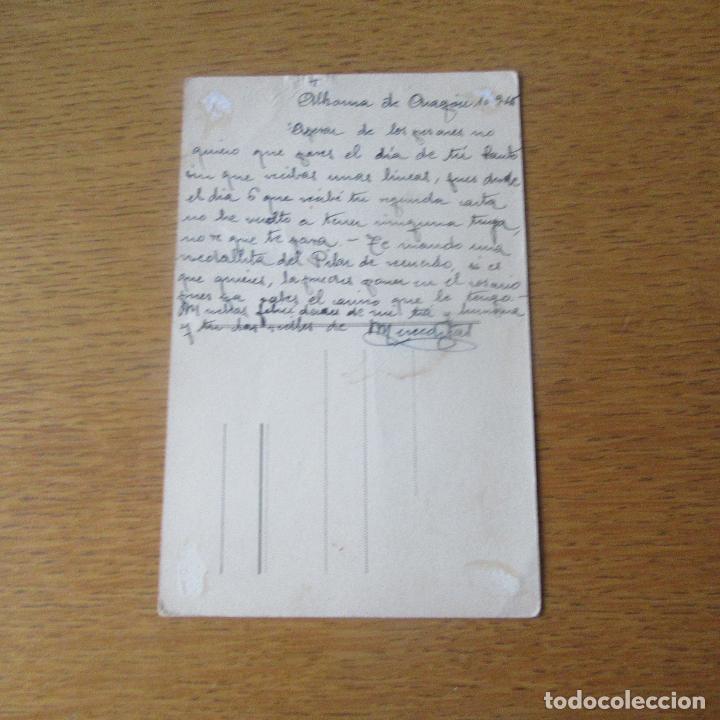 Alhama de Aragón 10 9
Apesar de los pesares no
quiero que pases el día de tu Santo
sin que recibas unas líneas, pues desde
el día 6 que recibí tu segunda carta
no he vuelto a tener ninguna tuya,
no se que te pasa. - Te mando una
medallita del Pilar de recuerdo, si es
que quieres, la puedes poner en el rosario
pues ya sabes el cariño que le tengo -
Muchas felicidades de mi tía y hermana
y tu las recibes de
todocoleccion.net